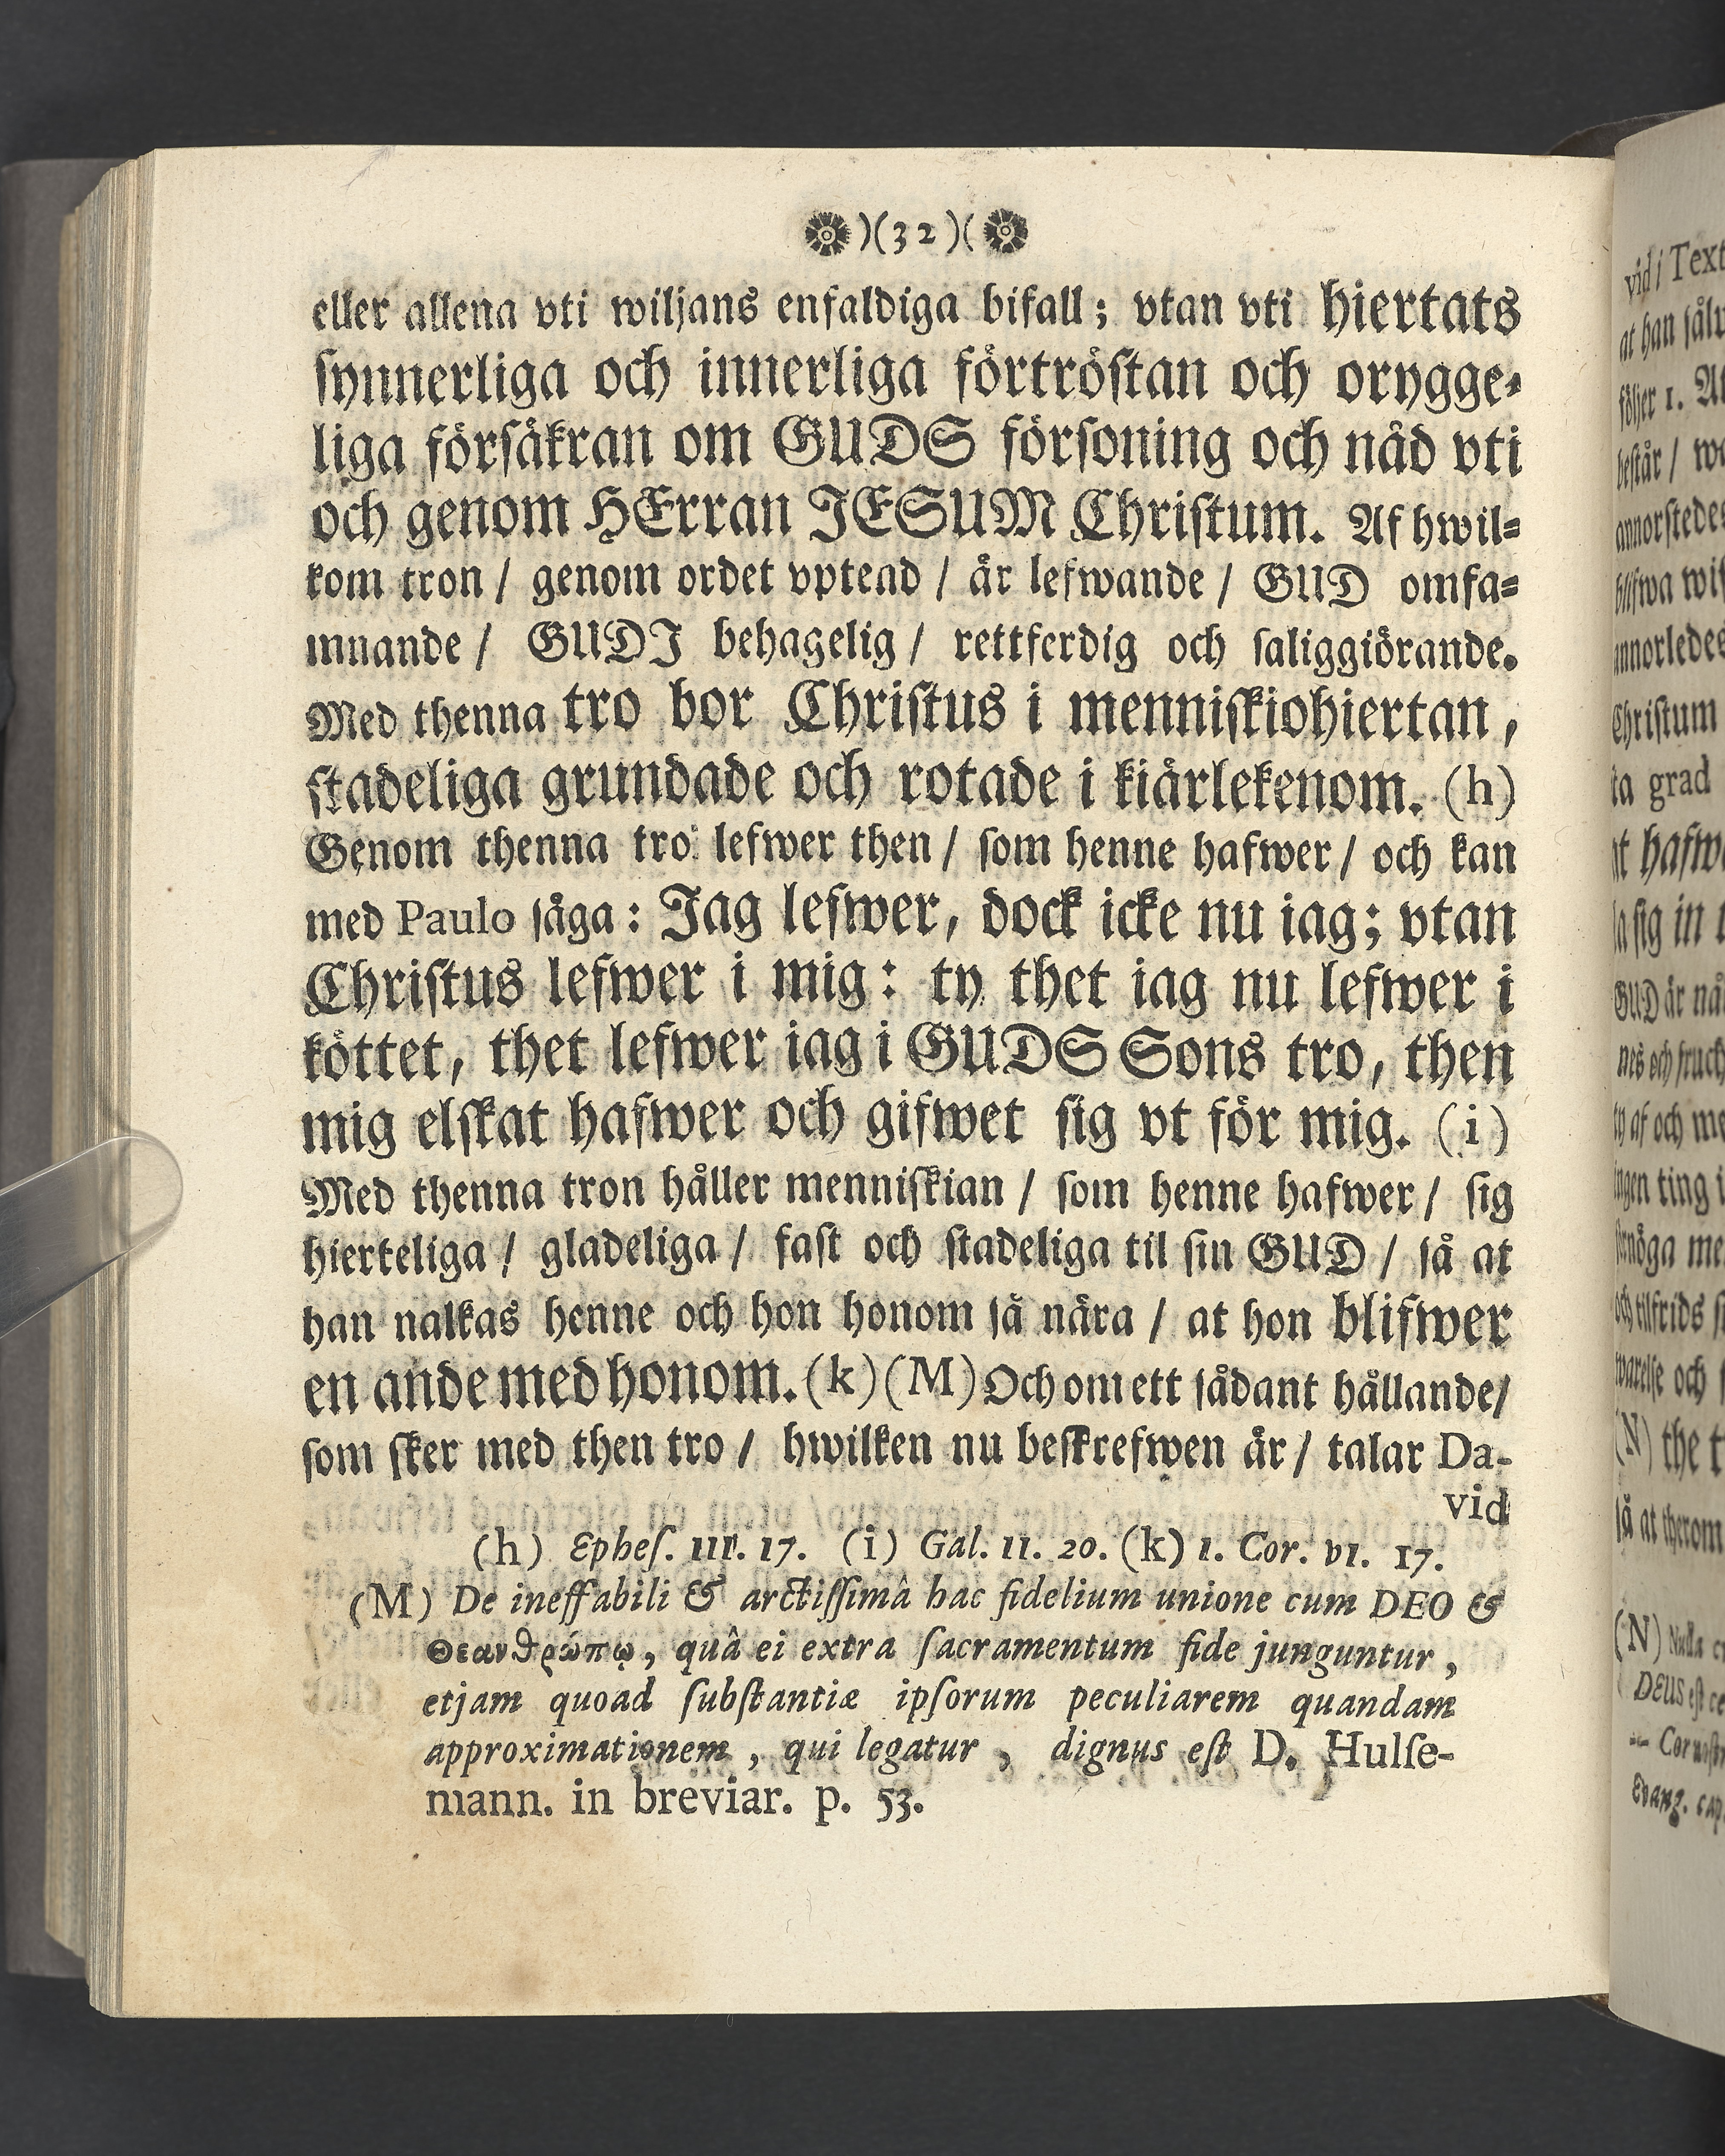 )(32)(
eller allena vti wiljans enfaldiga bifall; vtan vti hiertats
synnerliga och innerliga förtröstan och orygge-
liga försäkran om GUDS försoning och nåd vti
och genom HErran JESUM Christum. Af hwil-
kom tron / genom ordet vptend / är lefwande / GUD omfa-
mnande / GUDJ behagelig / rettferdig och saliggiörande.
Med thenna tro bor Christus i menniskiohiertan,
stadeliga grundade och rotade i kiärlekenom. (h)
Genom thenna tro lefwer then / som henne hafwer / och kan
med Paulo säga: Jag lefwer, dock icke nu iag; vtan
Christus lefwer i mig: ty thet iag nu lefwer i
köttet, thet lefwer iag i GUDS Sons tro, then
mig elskat hafwer och gifwet sig vt för mig. (i)
Med thenna tron håller menniskian / som henne hafwer / sig
hierteliga / gladeliga / fast och stadeliga til sin GUD / så at
han nalkas henne och hon honom så nära / at hon blifwer
en ande med honom. (k) (M) Och om ett sådant hållande/
som sker med then tro / hwilken nu beskrefwen är / talar Da-
vid
(h) Ephes. III. 17. (i) Gal. II. 20. (k) 1. Cor. VI. 17.
(M) De ineffabili & arctissimâ hac fidelium unione cum DEO &
Θεανθρώπῳ, quâ ei extra sacramentum fide junguntur,
etjam quoad substantiæ ipsorum peculiarem quandam
approximationem, qui legatur, dignus est D. Hulse-
mann. in breviar. p. 53.
vid i Text
at han
följer 1.
består /
Christum
ta grad
GUD är
af och
ingen ting i
och tilfrids
(N) the
(N) Nulla
DEUS est
Evang. cap.